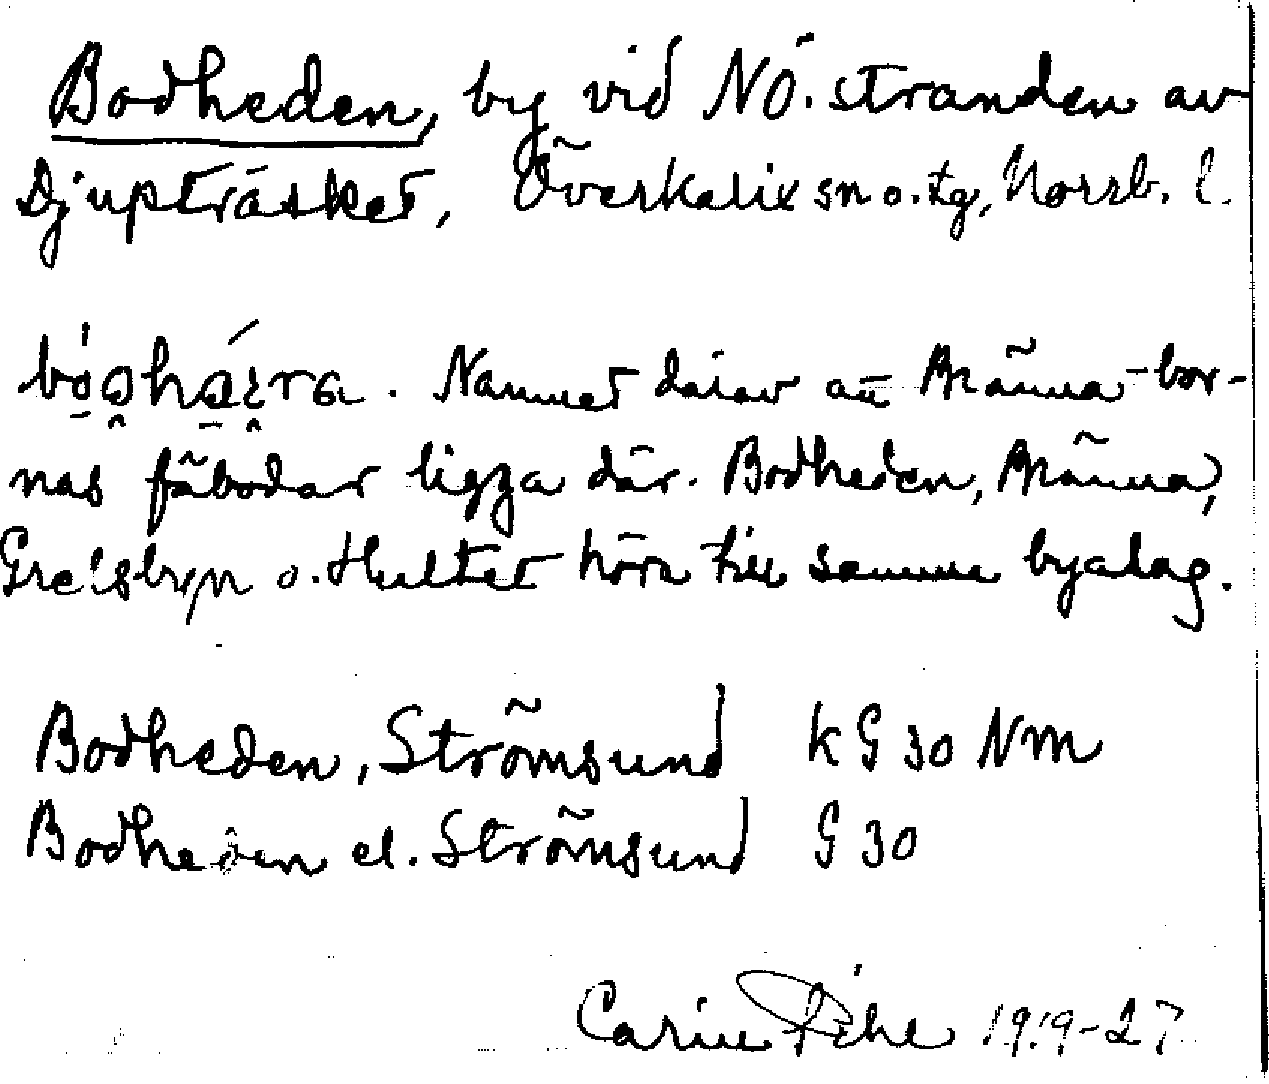 Bodheden, by vid NÖ. stranden av
Djupträsket, Överkalix sn o. tg, Norrb. l.
Namnet därav att Männa-bor-
nas fäbodar ligga där. Bodheden, Männa,
Grelsbyn o. Hultet höra till samma byalag.
Bodheden, Strömsund KG 30 NM
Bodheden el. Strömsund G 30
Carin Pihl 1919-27